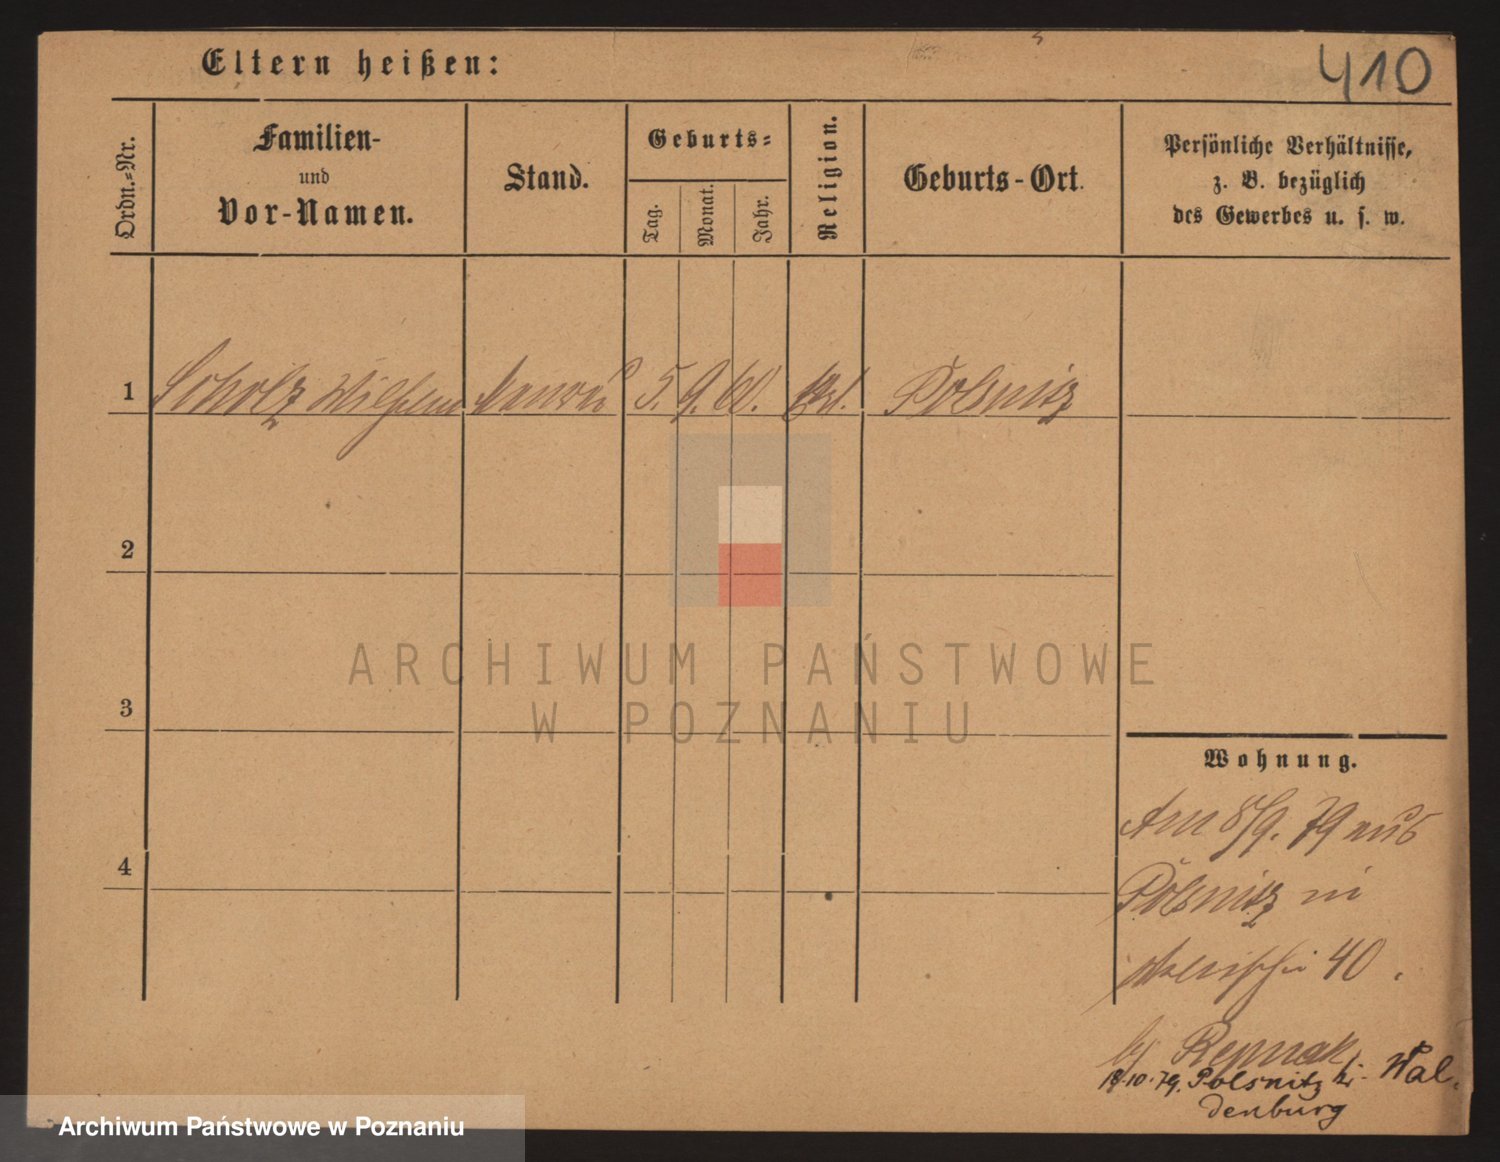 Eltern heißen:
410
Ordn.=Nr.
Familien-
und
Vor-Namen.
Stand.
Geburts=
Tag.
Monat.
Jahr.
Religion.
Geburts-Ort.
Persönliche Verhältnisse,
z. B. bezüglich
des Gewerbes u. s. w.
1 Scholz Wilhelm 5. 9. 60. Polsnitz
2
3
4
ARCHIWUM PAŃSTWOWE
W POZNANIU
Wohnung.
Am 8/9. 79 aus
Polsnitz in
40.
bj
18.10.79. Polsnitz Kr. Wal-
denburg
Archiwum Państwowe w Poznaniu